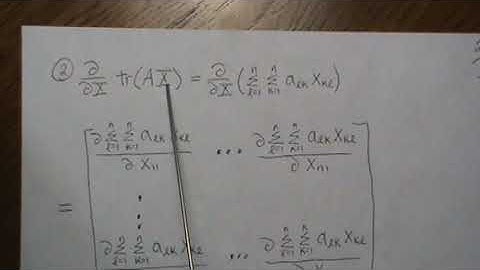 ② ∂/∂X tr(AX) = ∂/∂X (∑_{ℓ=1}^{n} ∑_{k=1}^{n} a_{ℓk} x_{kℓ})
∂∑_{ℓ=1}^{n} ∑_{k=1}^{n} a_{ℓk} x_{kℓ} / ∂x_{11} ... ∂∑_{ℓ=1}^{n} ∑_{k=1}^{n} a_{ℓk} x_{kℓ} / ∂x_{n1}
= ⋮
∂∑_{ℓ=1}^{n} ∑_{k=1}^{n} a_{ℓk} x_{kℓ} ... ∂∑_{ℓ=1}^{n} ∑_{k=1}^{n} a_{ℓk} x_{kℓ}